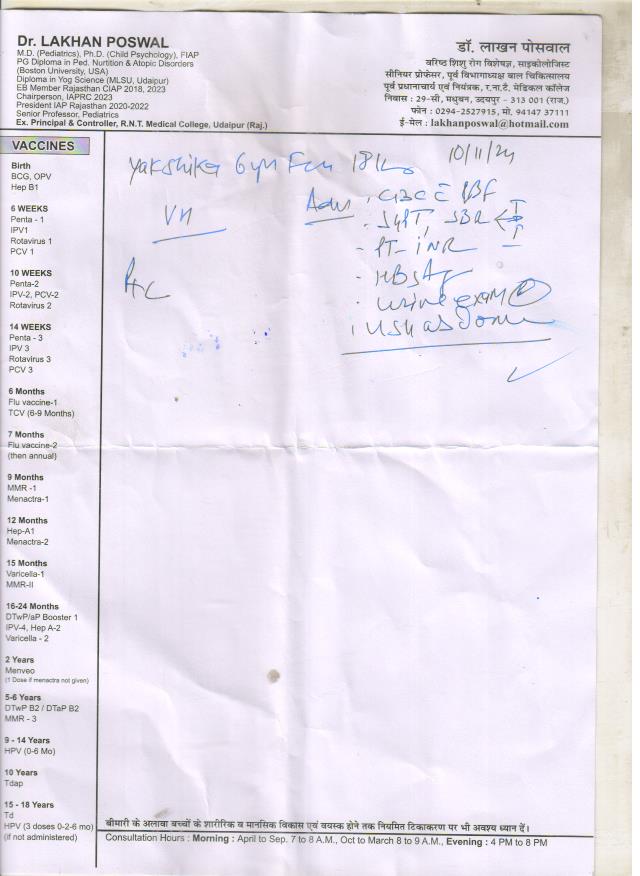 Dr. LAKHAN POSWAL
M.D. (Pediatrics), Ph.D. (Child Psychology), FIAP
PG Diploma in Ped. Nurtition & Atopic Disorders
(Boston University, USA)
Diploma in Yog Science (MLSU, Udaipur)
EB Member Rajasthan CIAP 2018, 2023
Chairperson, IAPRC 2023
President IAP Rajasthan 2020-2022
Senior Professor, Pediatrics
Ex. Principal & Controller, R.N.T. Medical College, Udaipur (Raj.)
डॉ. लाखन पोसवाल
वरिष्ठ शिशु रोग विशेषज्ञ, साइकोलोजिस्ट
सीनियर प्रोफेसर, पूर्व विभागाध्यक्ष बाल चिकित्सालय
पूर्व प्रधानाचार्य एवं नियंत्रक, र.ना.टै. मेडिकल कॉलेज
निवास : 29-सी, मधुबन, उदयपुर - 313 001 (राज.)
फोन : 0294-2527915, मो. 94147 37111
ई-मेल : lakhanposwal@hotmail.com
VACCINES
Birth
BCG, OPV
Hep B1
6 WEEKS
Penta - 1
IPV1
Rotavirus 1
PCV 1
10 WEEKS
Penta-2
IPV-2, PCV-2
Rotavirus 2
14 WEEKS
Penta - 3
IPV 3
Rotavirus 3
PCV 3
6 Months
Flu vaccine-1
TCV (6-9 Months)
7 Months
Flu vaccine-2
(then annual)
9 Months
MMR -1
Menactra-1
12 Months
Hep-A1
Menactra-2
15 Months
Varicella-1
MMR-II
16-24 Months
DTwP/aP Booster 1
IPV-4, Hep A-2
Varicella - 2
2 Years
Menveo
(1 Dose if menactra not given)
5-6 Years
DTwP B2 / DTaP B2
MMR - 3
9 - 14 Years
HPV (0-6 Mo)
10 Years
Tdap
15 - 18 Years
Td
HPV (3 doses 0-2-6 mo)
(if not administered)
Yakshika 6yr Fem 18 10/11/24
VH
Adv . CBC c PBF
. SGPT, SBR
- PT-INR
- HBsAg
- Urine exam
. USG abdomen
बीमारी के अलावा बच्चों के शारीरिक व मानसिक विकास एवं वयस्क होने तक नियमित टिकाकरण पर भी अवश्य ध्यान दें।
Consultation Hours : Morning : April to Sep. 7 to 8 A.M., Oct to March 8 to 9 A.M., Evening : 4 PM to 8 PM